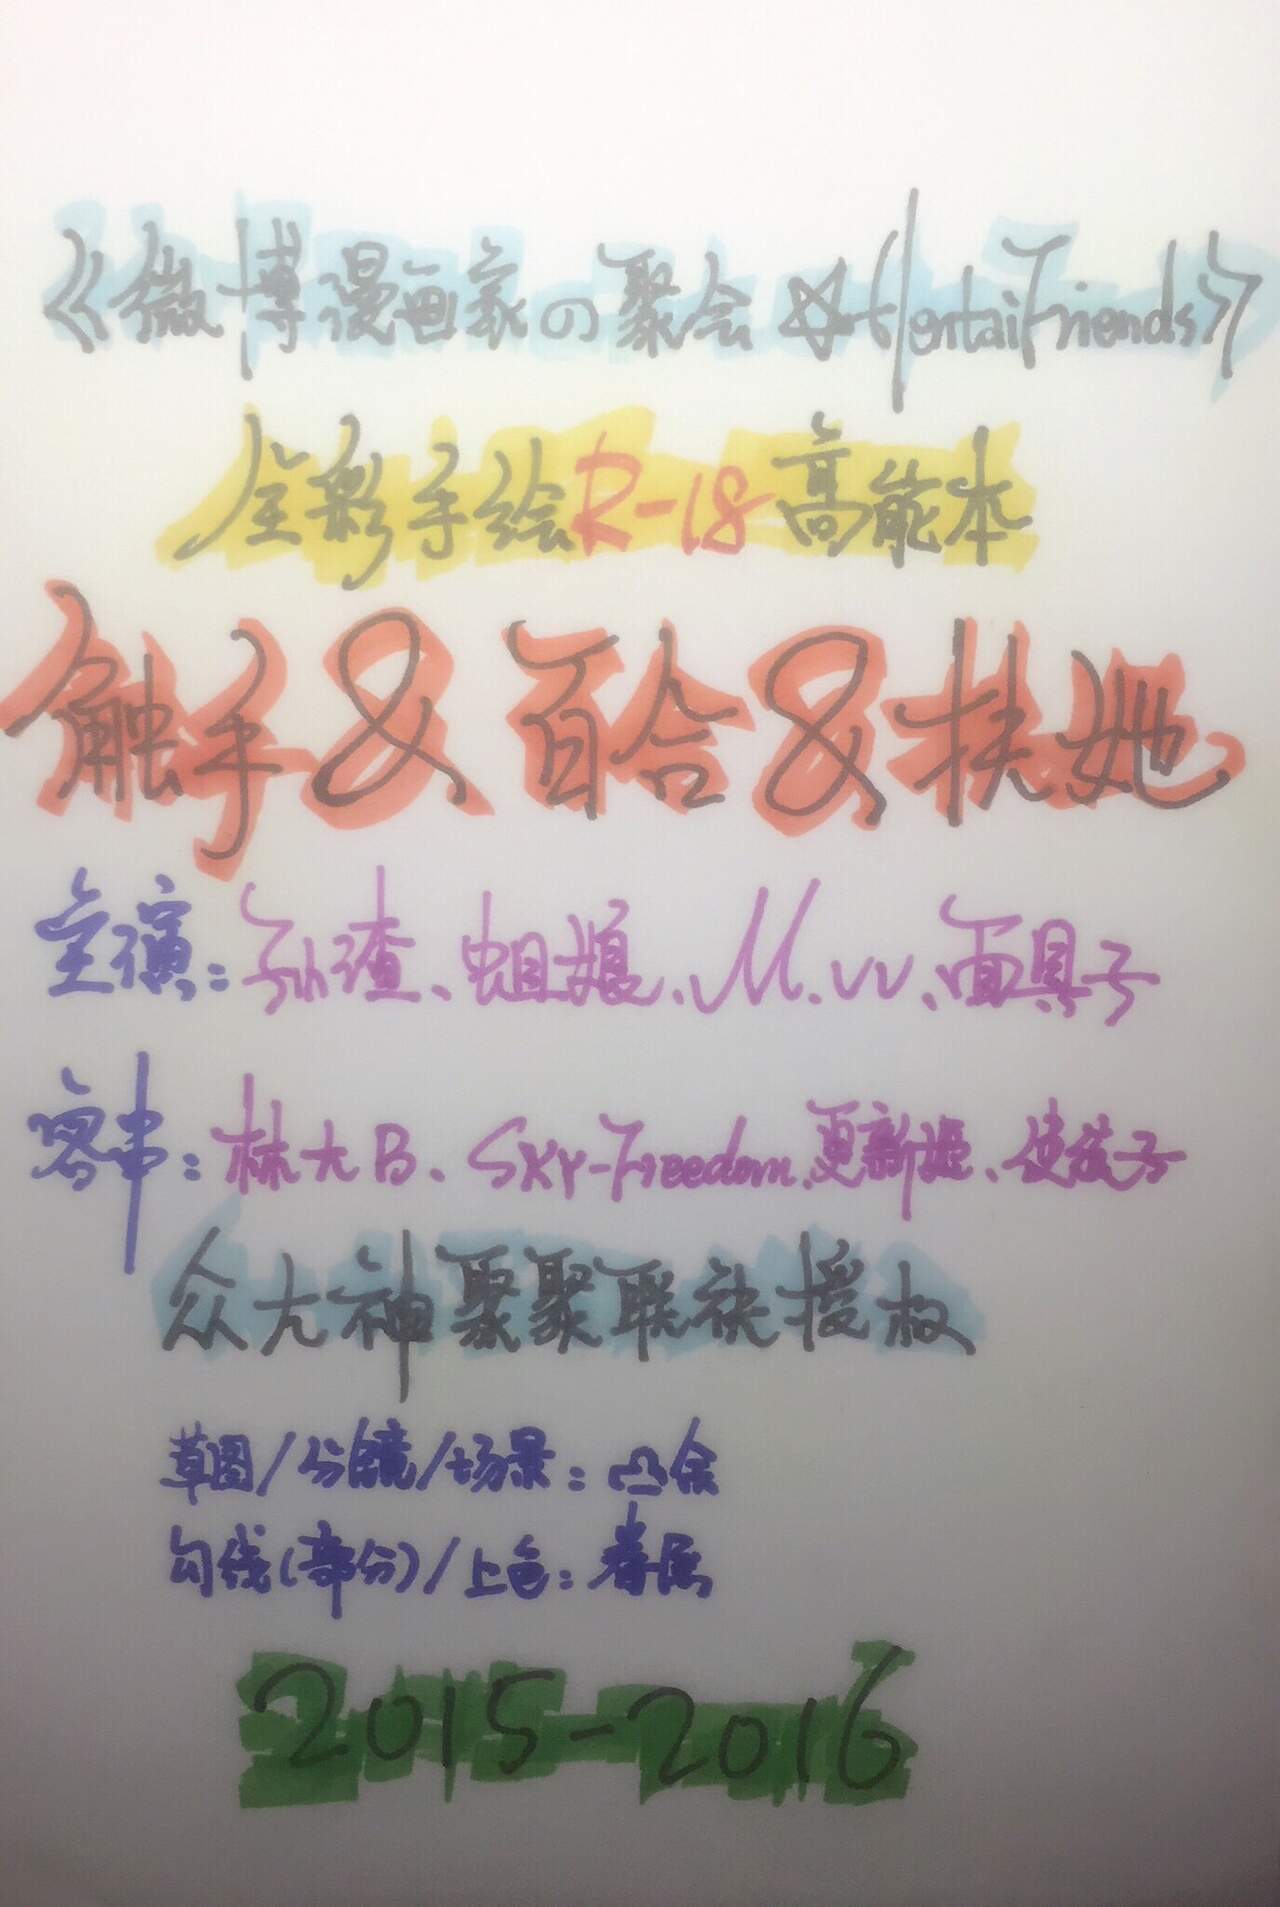 《微博漫画家の聚会☆HentaiFriends》
全彩手绘R-18高能本
触手&百合&扶她
主演：孙渣、蛆娘、M.W、面具子
客串：林大B、SKY-Freedom、更新姬、使徒子
众大神聚聚联袂授权
草图/分镜/场景：凸余
勾线(部分)/上色：
2015-2016